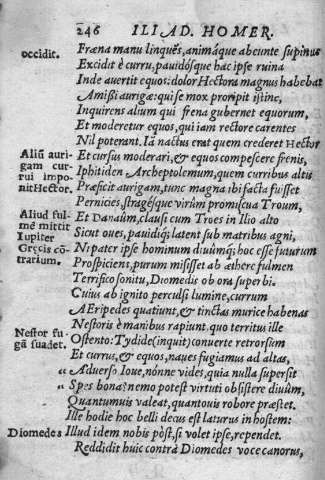 246 ILIAD. HOMER.
occidit.
Fræna manu linquẽs, animáque abeunte supinus
Excidit è curru, pauidósque hac ipse ruina
Inde auertit equos: dolor Hectora magnus habebat
Amißi aurigæ: qui se mox proripit istinc,
Inquirens alium qui frena gubernet equorum,
Et moderetur equos, qui iam rectore carentes
Nil poterant. Iã nactus erat quem crederet Hector
Aliũ aurigam
currui imponit
Hector.
Et cursus moderari, & equos compescere frenis,
Iphitiden Archeptolemum, quem curribus altis
Præficit aurigam, tunc magna ibi facta fuisset
Pernicies, stragésque virûm promiscua Troum,
Aliud fulmẽ
mittit
Iupiter
Grecis cõtrarium.
Et Danaûm, clausi cum Troes in Ilio alto
Sicut oues, pauidíq; latent sub matribus agni,
Ni pater ipse hominum diuûmq; hoc esse futurum
Prospiciens, purum misisset ab æthere fulmen
Terrifico sonitu, Diomedis ob ora superbi.
Cuius ab ignito perculsi lumine, currum
AEripedes quatiunt, & tinctas murice habenas
Nestoris è manibus rapiunt. quo territus ille
Nestor fugã
suadet.
Ostento: Tydide (inquit) conuerte retrorsum
Et currus, & equos, naues fugiamus ad altas,
“ Aduerso Ioue, nónne vides, quia nulla supersit
“ Spes bona? nemo potest virtuti obsistere diuûm,
Quantumuis valeat, quantouis robore præstet.
Ille hodie hoc belli decus est laturus in hostem:
Diomedes
Illud idem nobis pòst, si volet ipse, rependet.
Reddidit huic contrà Diomedes voce canorus,